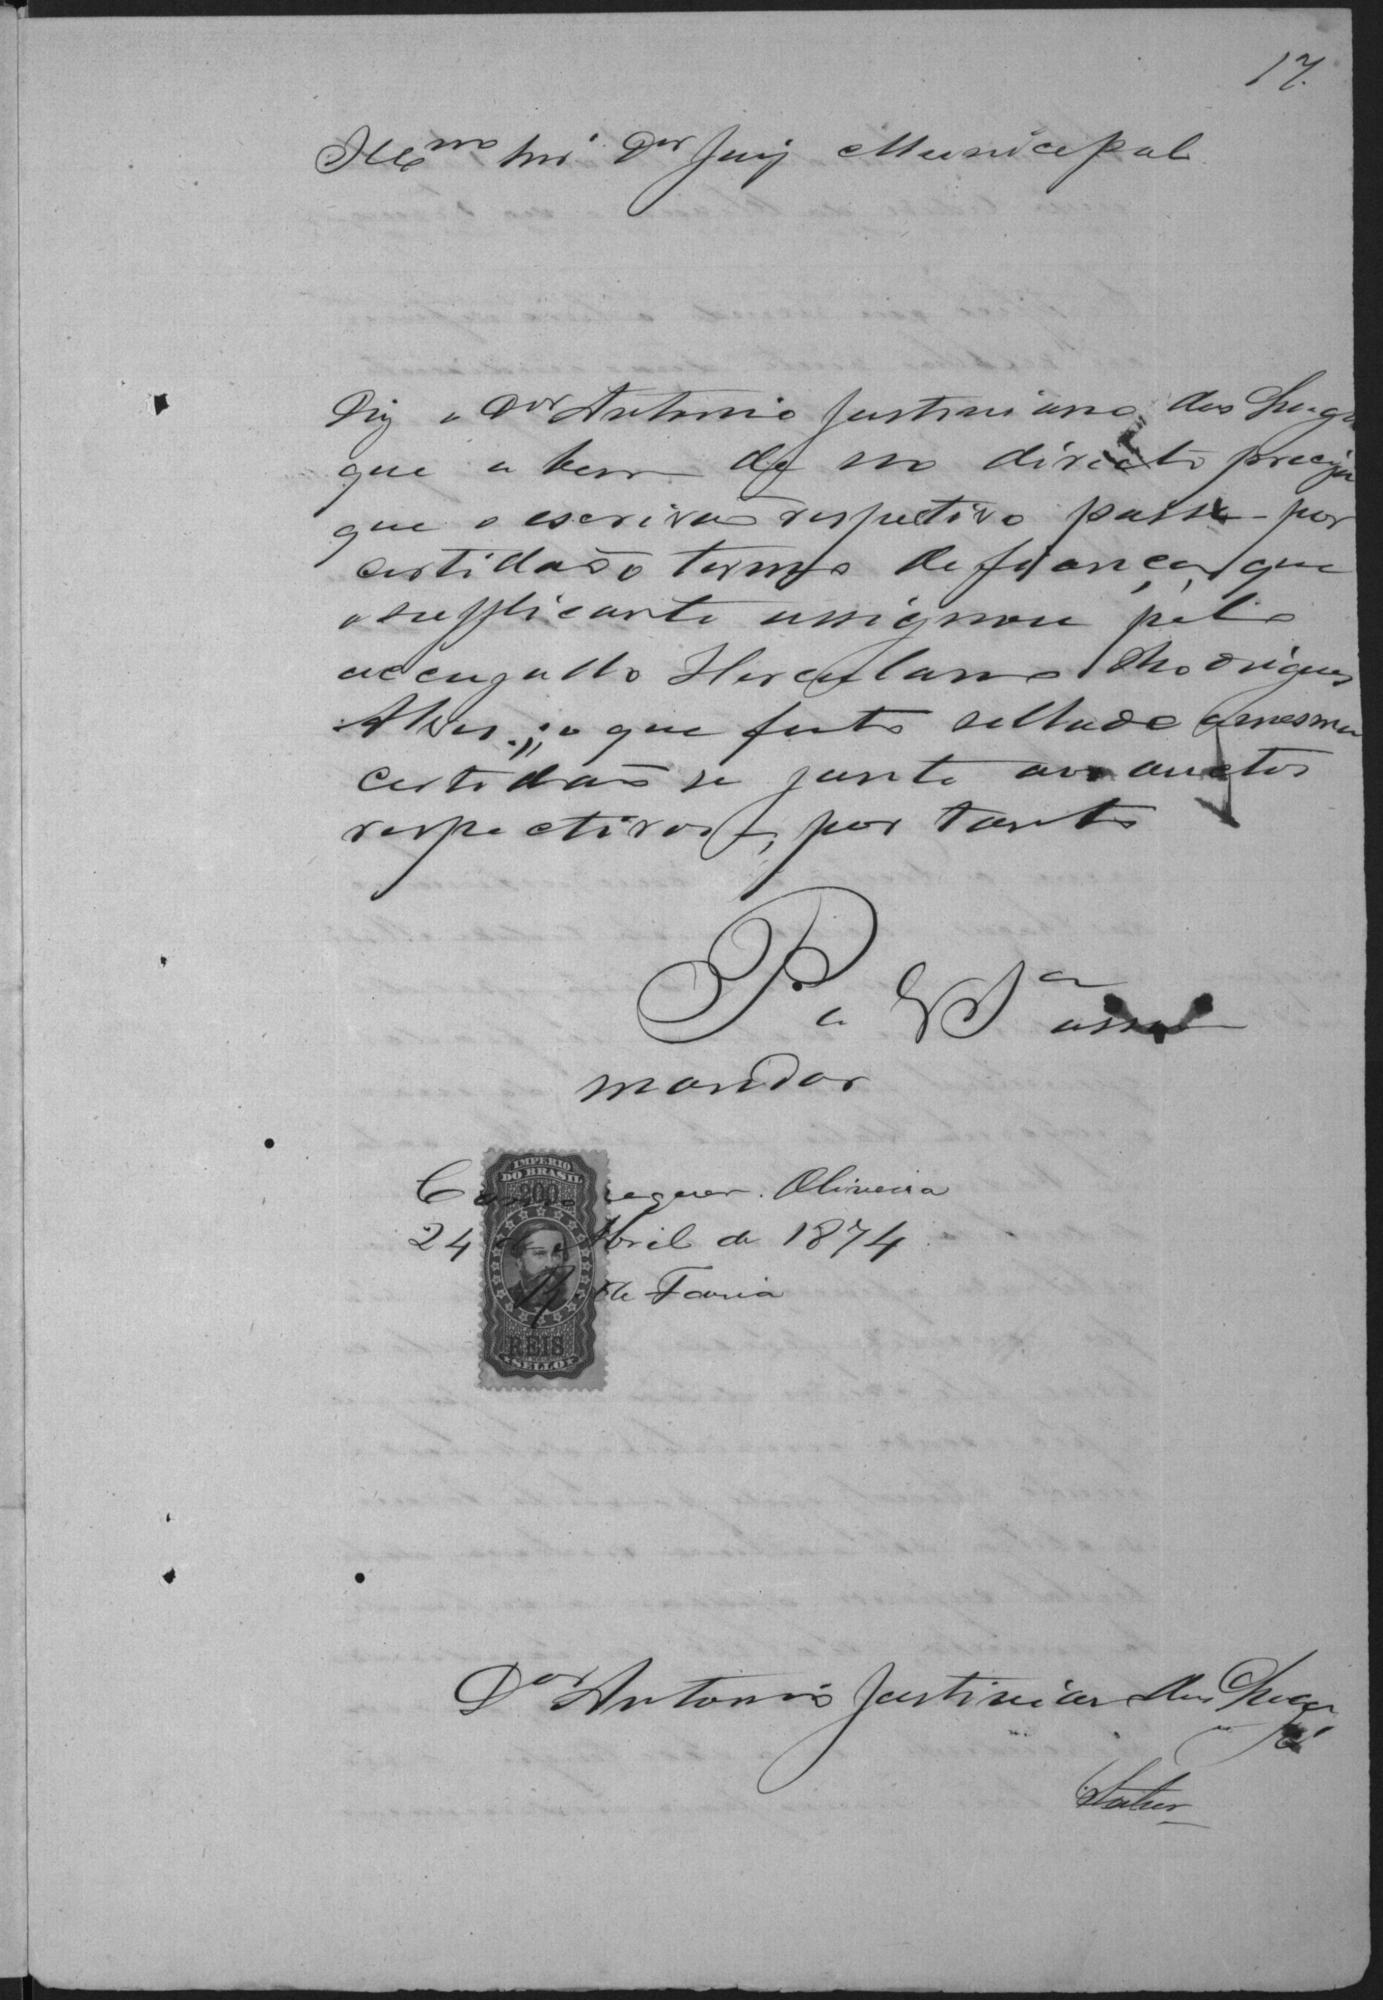 17.
Ill.mo Snr Dor Juiz Municipal
Diz o Dor Antonio Justiniano das Chagas
que a bem de seo direito precisa
que o escrivaõ respectivo passe por
certidaõ o termo de fiança, que
o supplicante assignou pelo
accuzado Herculano Rodrigues
Alves; o que feito sellada a mesma
certidaõ se junte aos auctos
respectivos, por tanto
P. a VSa assim
mandar
Como requer. Oliveira
24 de Abril de 1874
R. de Faria
IMPERIO
DO BRASIL
200
REIS
SELLO
Dor Antonio Justiniano das Chagas